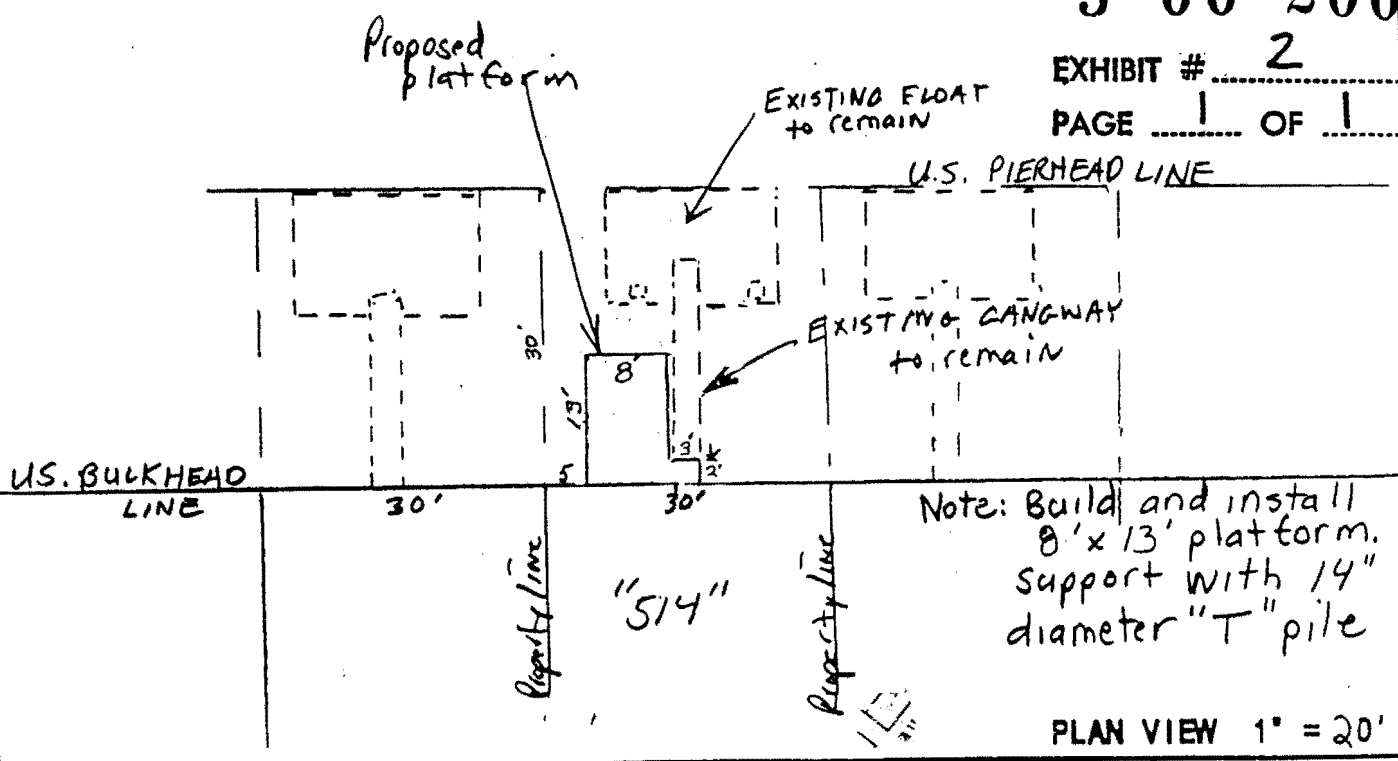 EXHIBIT # 2
PAGE 1 OF 1
Proposed
platform
EXISTING FLOAT
to remain
U.S. PIERHEAD LINE
30'
EXISTING GANGWAY
to remain
8'
13'
3'
2'
5
U.S. BULKHEAD
LINE
30'
30'
Property line
"514"
Property line
Note: Build and install
8'x 13' platform.
support with 14"
diameter "T" pile
PLAN VIEW 1" = 20'